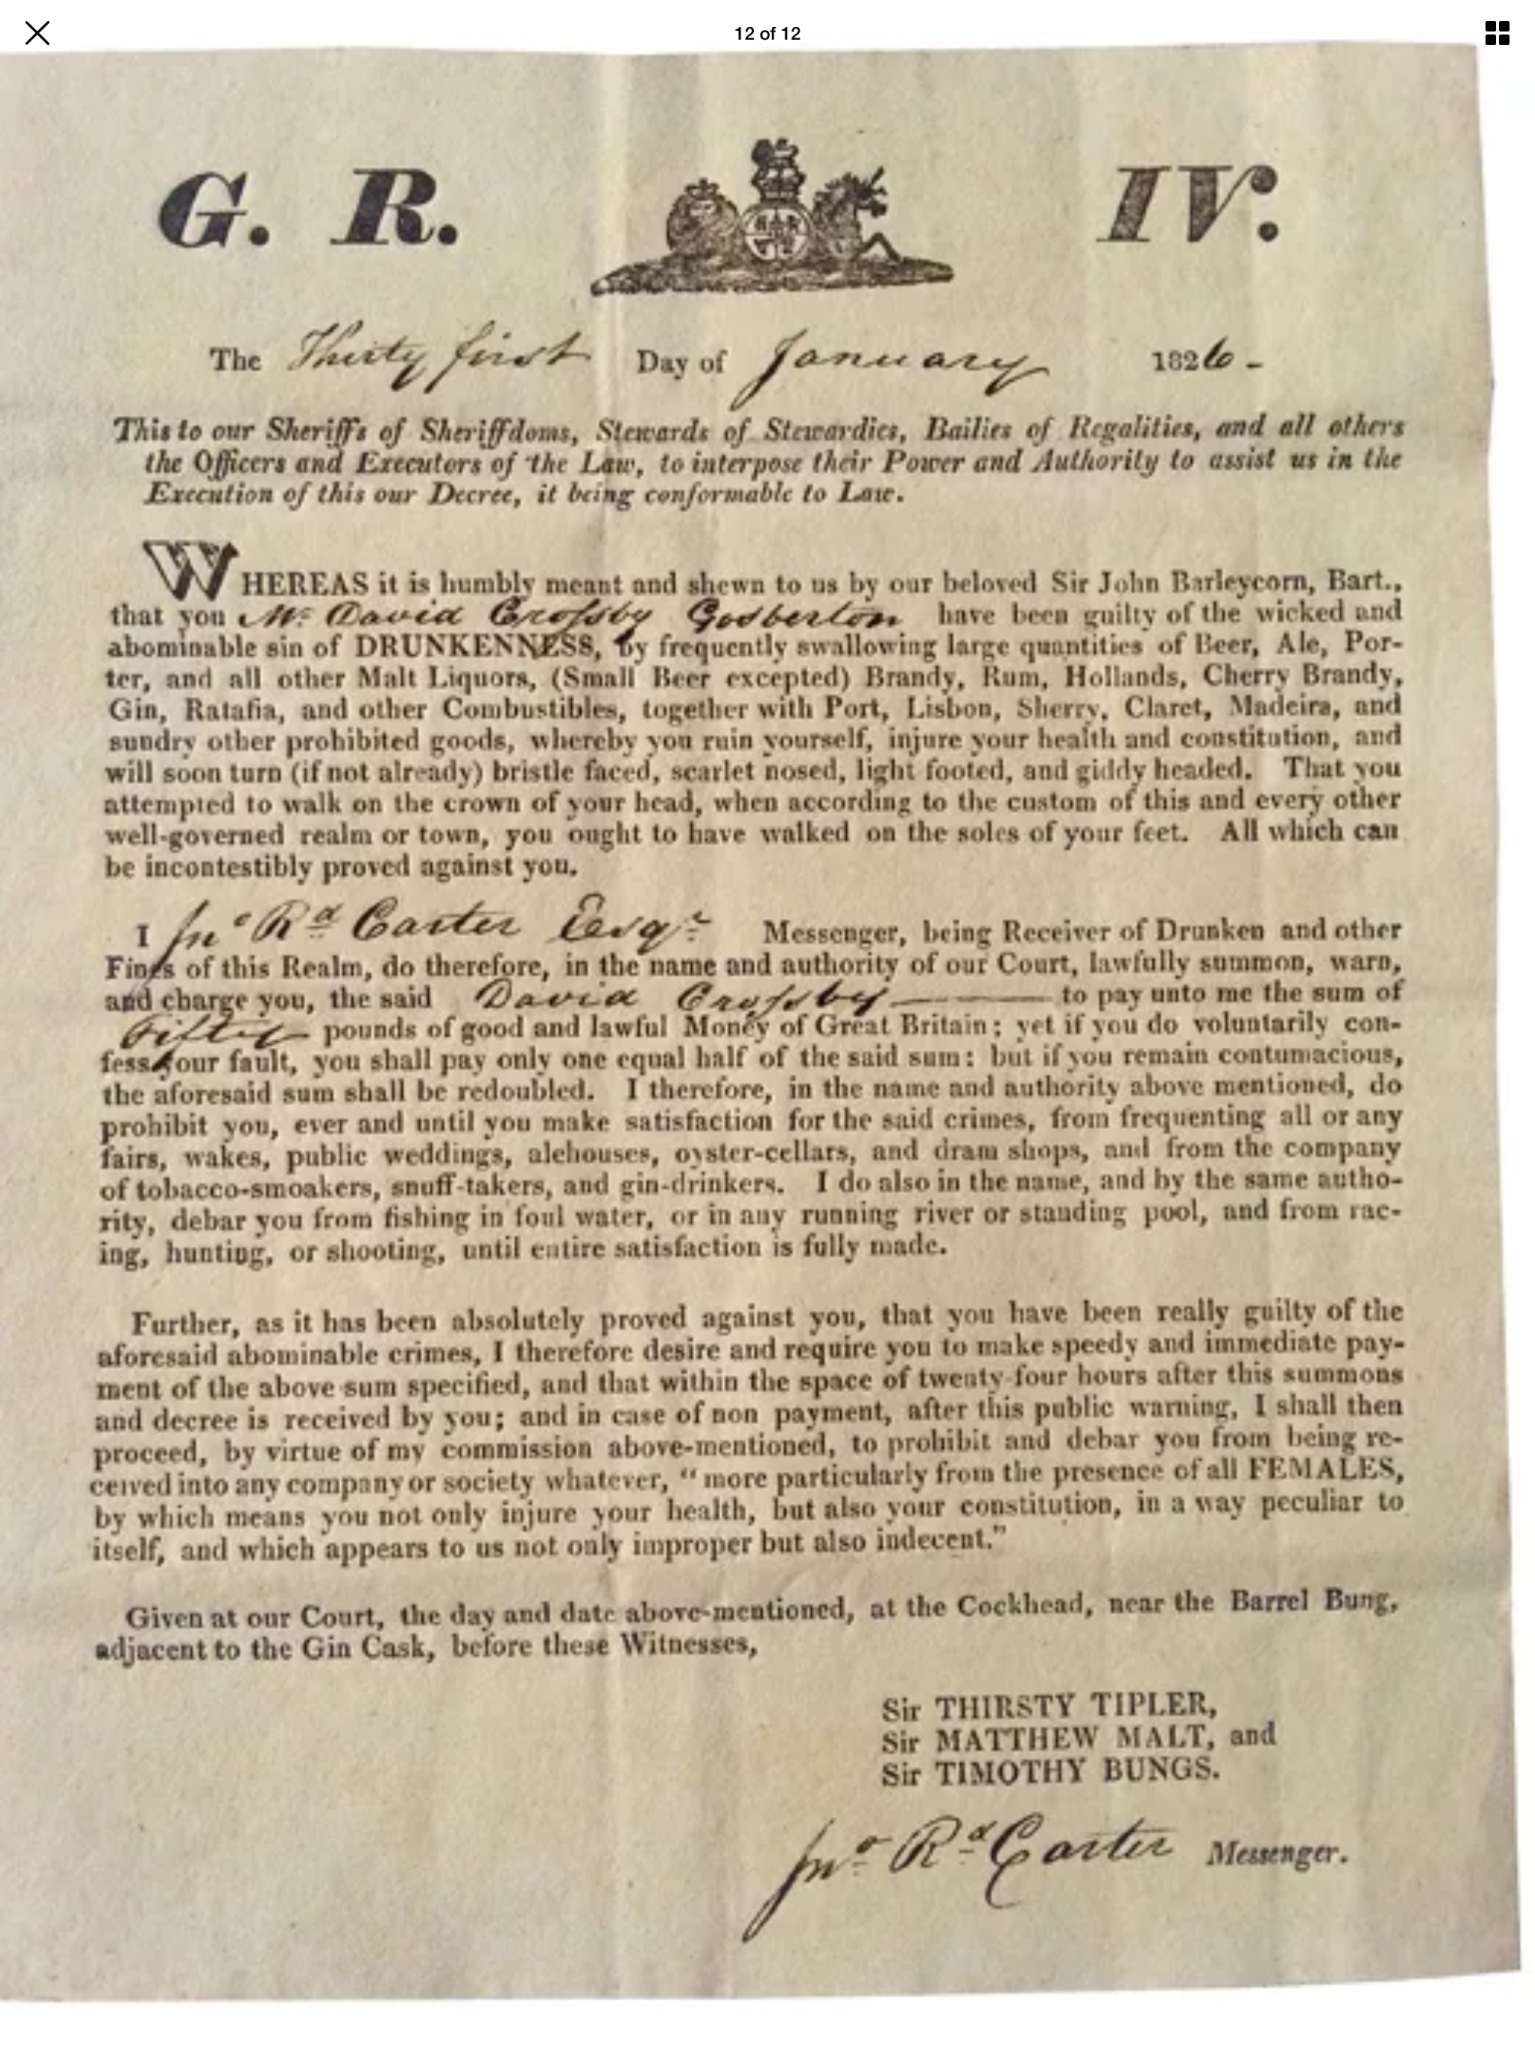 12 of 12
G. R. IV.
The Thirty first Day of January 1826-
This to our Sheriffs of Sheriffdoms, Stewards of Stewardies, Bailies of Regalities, and all others
the Officers and Executors of the Law, to interpose their Power and Authority to assist us in the
Execution of this our Decree, it being conformable to Law.
WHEREAS it is humbly meant and shewn to us by our beloved Sir John Barleycorn, Bart.,
that you Mr. David Crofsby Gosberton have been guilty of the wicked and
abominable sin of DRUNKENNESS, by frequently swallowing large quantities of Beer, Ale, Por-
ter, and all other Malt Liquors, (Small Beer excepted) Brandy, Rum, Hollands, Cherry Brandy,
Gin, Ratafia, and other Combustibles, together with Port, Lisbon, Sherry, Claret, Madeira, and
sundry other prohibited goods, whereby you ruin yourself, injure your health and constitution, and
will soon turn (if not already) bristle faced, scarlet nosed, light footed, and giddy headed. That you
attempted to walk on the crown of your head, when according to the custom of this and every other
well-governed realm or town, you ought to have walked on the soles of your feet. All which can
be incontestibly proved against you.
I Jno Rd Carter Esqr Messenger, being Receiver of Drunken and other
Fines of this Realm, do therefore, in the name and authority of our Court, lawfully summon, warn,
and charge you, the said David Crofsby —— to pay unto me the sum of
Fifty pounds of good and lawful Money of Great Britain; yet if you do voluntarily con-
fess your fault, you shall pay only one equal half of the said sum: but if you remain contumacious,
the aforesaid sum shall be redoubled. I therefore, in the name and authority above mentioned, do
prohibit you, ever and until you make satisfaction for the said crimes, from frequenting all or any
fairs, wakes, public weddings, alehouses, oyster-cellars, and dram shops, and from the company
of tobacco-smoakers, snuff-takers, and gin-drinkers. I do also in the name, and by the same autho-
rity, debar you from fishing in foul water, or in any running river or standing pool, and from rac-
ing, hunting, or shooting, until entire satisfaction is fully made.
Further, as it has been absolutely proved against you, that you have been really guilty of the
aforesaid abominable crimes, I therefore desire and require you to make speedy and immediate pay-
ment of the above sum specified, and that within the space of twenty-four hours after this summons
and decree is received by you; and in case of non payment, after this public warning, I shall then
proceed, by virtue of my commission above-mentioned, to prohibit and debar you from being re-
ceived into any company or society whatever, "more particularly from the presence of all FEMALES,
by which means you not only injure your health, but also your constitution, in a way peculiar to
itself, and which appears to us not only improper but also indecent."
Given at our Court, the day and date above-mentioned, at the Cockhead, near the Barrel Bung,
adjacent to the Gin Cask, before these Witnesses,
Sir THIRSTY TIPLER,
Sir MATTHEW MALT, and
Sir TIMOTHY BUNGS.
Jno Rd Carter Messenger.